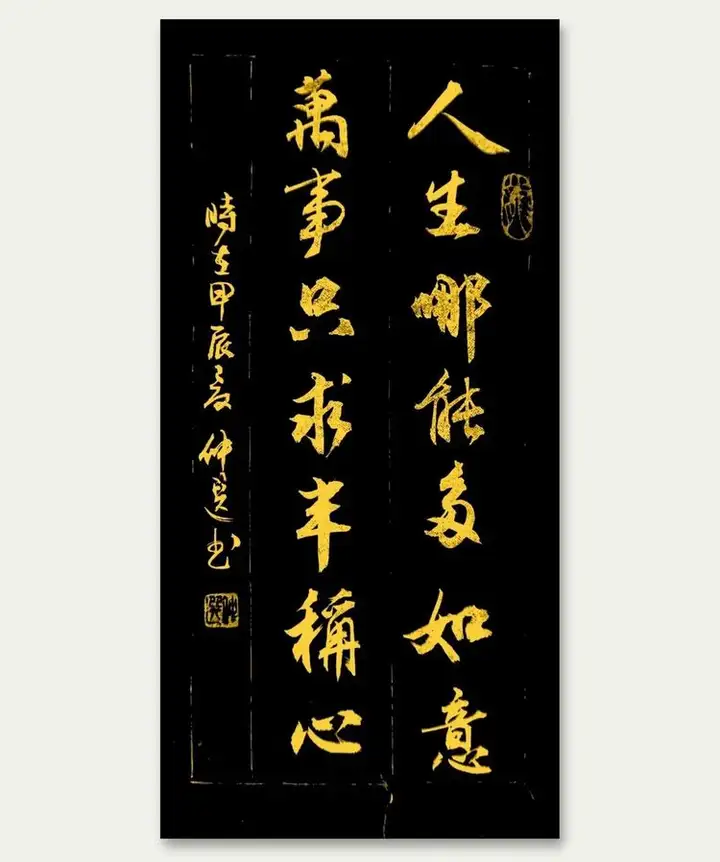 人生哪能多如意
萬事只求半稱心
時在甲辰夏仲선書